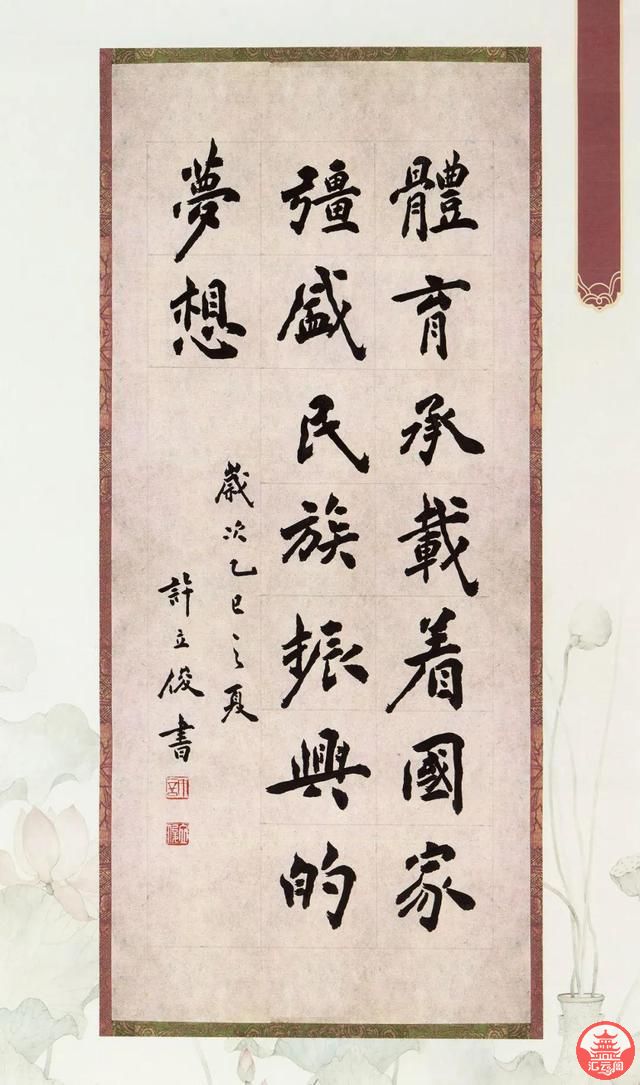 體育承載着國家
彊盛民族振興的
夢想
歲次乙巳之夏
許立俊書
汇云阁